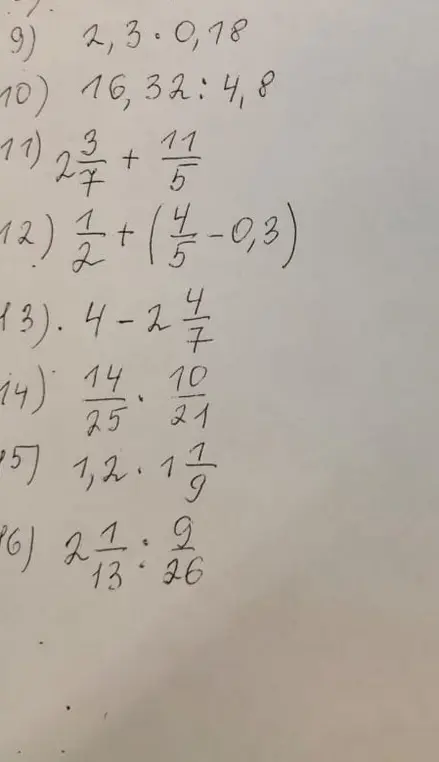 9) 2,3 · 0,18
10) 16,32 : 4,8
11) 2 3/7 + 11/5
12) 1/2 + (4/5 - 0,3)
13). 4 - 2 4/7
14) 14/25 · 10/21
15) 1,2 · 1 1/9
16) 2 1/13 : 9/26